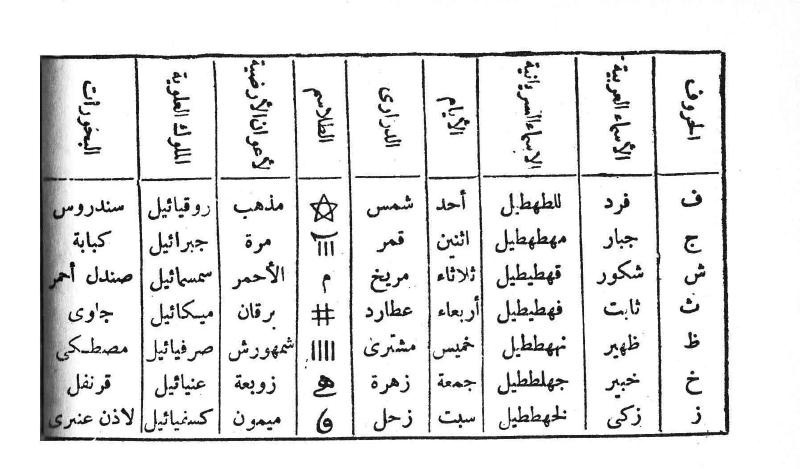 الحروف الأسماء العربية الاسماء السريانية الأيام الدرارى الطلاسم لأعوان الأرضية الملوك العلوية البخورات
ف فرد للطهطيل أحد شمس مذهب روقيائيل سندروس
ج جبار مهطهطيل اثنين قمر مرة جبرائيل كبابة
ش شكور قهطيطيل ثلاثاء مريخ م الأحمر سمسمائيل صندل أحمر
ث ثابت فهطيطيل أربعاء عطارد # برقان ميكائيل جاوى
ظ ظهير نههططيل خميس مشترى شمهورش صرفيائيل مصطكى
خ خبير جهلططيل جمعة زهرة زوبعة عنيائيل قرنفل
ز زكى لخهططيل سبت زحل و ميمون كسفيائيل لاذن عنبرى